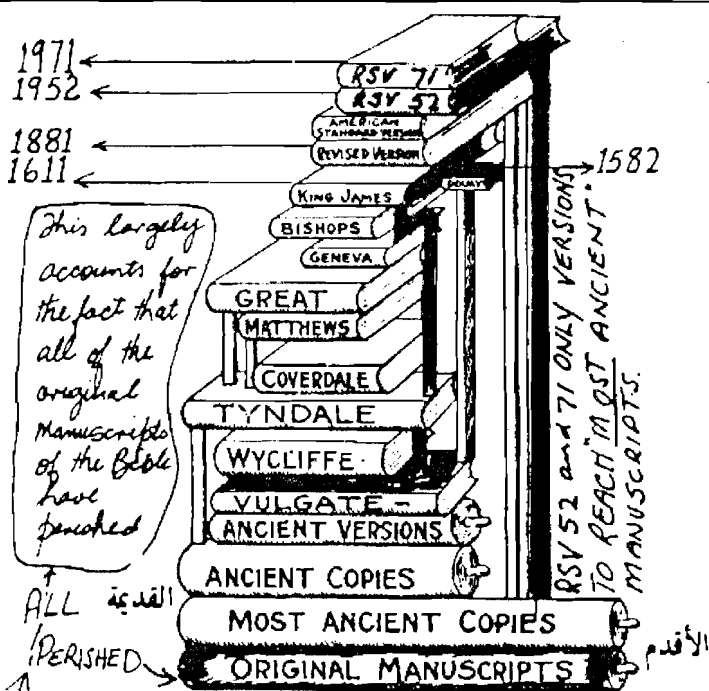 1971
RSV 71
1952
RSV 52
AMERICAN
STANDARD VERSION
1881
REVISED VERSION
1611
1582
DOUAY
KING JAMES
BISHOPS
GENEVA
GREAT
MATTHEWS
COVERDALE
TYNDALE
WYCLIFFE
VULGATE
ANCIENT VERSIONS
ANCIENT COPIES
القديمة
MOST ANCIENT COPIES
الأقدم
ORIGINAL MANUSCRIPTS
This largely
accounts for
the fact that
all of the
original
Manuscripts
of the Bible
have
perished
ALL
PERISHED
RSV 52 and 71 ONLY VERSIONS
TO REACH "MOST ANCIENT"
MANUSCRIPTS.